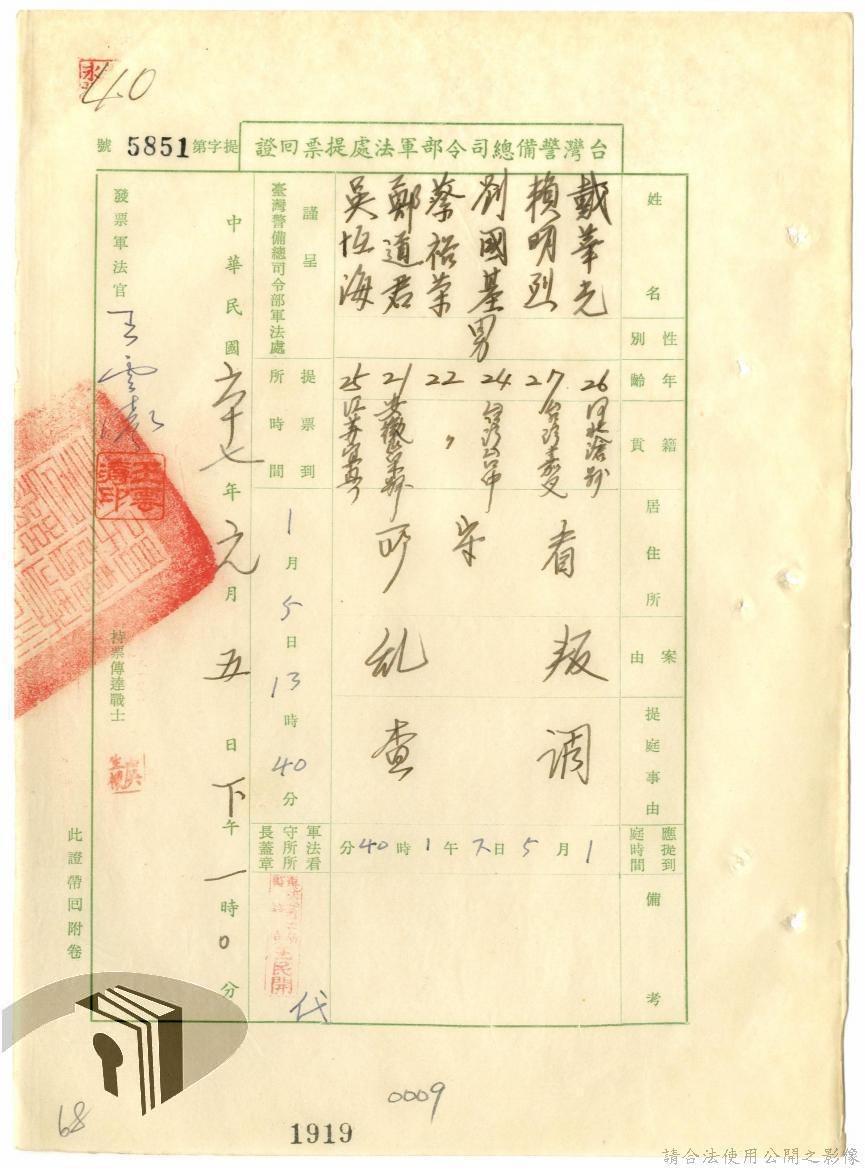 40
台灣警備總司令部軍法處提票回證
提字第 5851 號
姓名
戴華光
賴明烈
劉國基
蔡裕榮
鄭道君
吳恆海
性別
男
年齡
26
27
24
22
21
25
籍貫
河北滄縣
台灣嘉义
台灣台中
〃
居住所
看守所
案由
叛乱
提庭事由
调查
應提到庭時間
1月5日下午1時40分
備考
謹呈
臺灣警備總司令部軍法處
提票到所時間
1月5日13時40分
軍法看守所所長蓋章
王民開
代
中華民國六十七年元月五日下午一時0分
發票軍法官
王雲濤
王雲濤印
持票傳達戰士
此證帶回附卷
68
0009
1919
請合法使用公開之影像